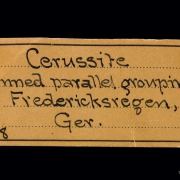 Cerussite
parallel grouping
Fredericksregen,
Ger.
8